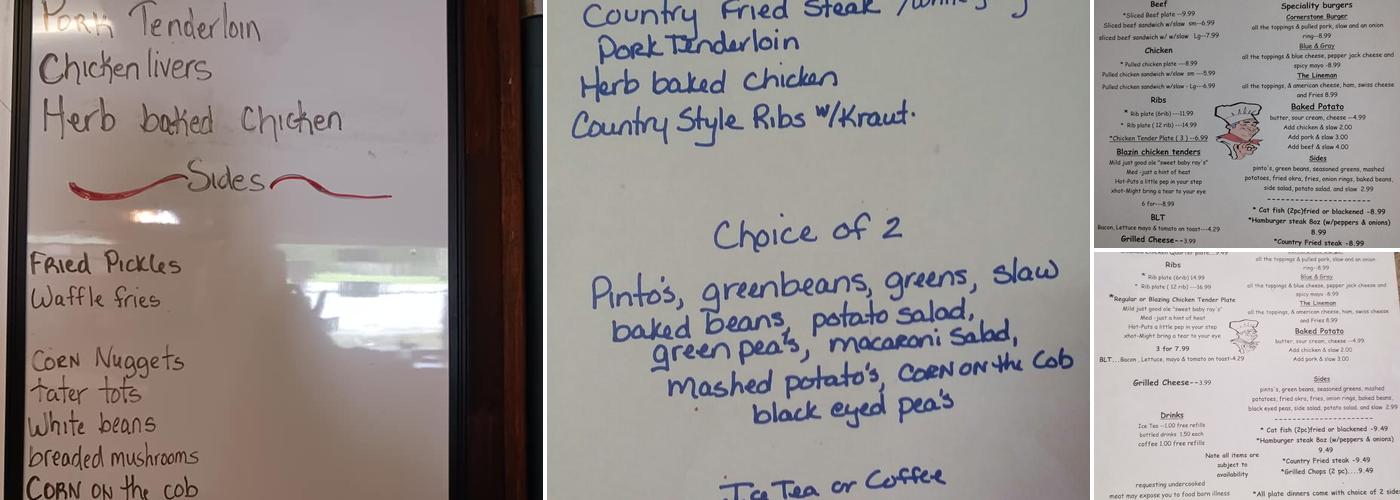 Pork Tenderloin
Chicken livers
Herb baked Chicken
Sides
Fried Pickles
Waffle fries
CORN Nuggets
tater tots
White beans
breaded mushrooms
CORN ON the cob
Country Fried Steak
Pork Tenderloin
Herb baked Chicken
Country Style Ribs w/Kraut.
Choice of 2
Pinto's, greenbeans, greens, slaw
baked beans, potato salad,
green pea's, macaroni Salad,
mashed potato's, CORN ON the Cob
black eyed pea's
Ice Tea or Coffee
Beef
*Sliced Beef plate --9.99
Sliced beef sandwich w/slaw sm--6.99
sliced beef sandwich w/ w/slaw Lg--7.99
Chicken
* Pulled chicken plate ---8.99
Pulled chicken sandwich w/slaw sm ---5.99
Pulled chicken sandwich w/slaw - Lg--6.99
Ribs
* Rib plate (6rib) ---11.99
* Rib plate ( 12 rib) ---14.99
*Chicken Tender Plate ( 3 ) --6.99
Blazin chicken tenders
Mild just good ole "sweet baby ray's"
Med -just a hint of heat
Hot-Puts a little pep in your step
xhot-Might bring a tear to your eye
6 for---8.99
BLT
Bacon, Lettuce mayo & tomato on toast---4.29
Grilled Cheese--3.99
Speciality burgers
Cornerstone Burger
all the toppings & pulled pork, slaw and an onion
ring--8.99
Blue & Gray
all the toppings & blue cheese, pepper jack cheese and
spicy mayo -8.99
The Lineman
all the toppings, & american cheese, ham, swiss cheese
and Fries 8.99
Baked Potato
butter, sour cream, cheese --4.99
Add chicken & slaw 2.00
Add pork & slaw 3.00
Add beef & slaw 4.00
Sides
pinto's, green beans, seasoned greens, mashed
potatoes, fried okra, fries, onion rings, baked beans,
side salad, potato salad, and slaw 2.99
* Cat fish (2pc)fried or blackened -8.99
*Hamburger steak 8oz (w/peppers & onions)
8.99
*Country Fried steak -8.99
Ribs
* Rib plate (6rib) 14.99
* Rib plate ( 12 rib) ---16.99
*Regular or Blazing Chicken Tender Plate
Mild just good ole "sweet baby ray's"
Med -just a hint of heat
Hot-Puts a little pep in your step
xhot-Might bring a tear to your eye
3 for 7.99
BLT...Bacon , Lettuce, mayo & tomato on toast-4.29
Grilled Cheese--3.99
Drinks
Ice Tea --1.00 free refills
bottled drinks 1.50 each
coffee 1.00 free refills
Note all items are
subject to
availability
requesting undercooked
meat may expose you to food born illness
all the toppings & pulled pork, slaw and an onion
ring--8.99
Blue & Gray
all the toppings & blue cheese, pepper jack cheese and
spicy mayo -8.99
The Lineman
all the toppings, & american cheese, ham, swiss cheese
and Fries 8.99
Baked Potato
butter, sour cream, cheese --4.99
Add chicken & slaw 2.00
Add pork & slaw 3.00
Sides
pinto's, green beans, seasoned greens, mashed
potatoes, fried okra, fries, onion rings, baked beans,
black eyed peas, side salad, potato salad, and slaw 2.99
* Cat fish (2pc)fried or blackened -9.49
*Hamburger steak 8oz (w/peppers & onions)
9.49
*Country Fried steak -9.49
*Grilled Chops (2 pc)....9.49
*All plate dinners come with choice of 2 side